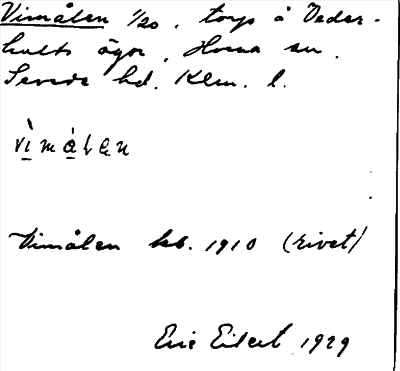 Vimålen 1/20, torp å Veder-
hults ägor, Horna sn.
Sevede hd. Klm. l.
vìmålen
Vimålen kb. 1910 (rivet)
Eric Eilert 1929